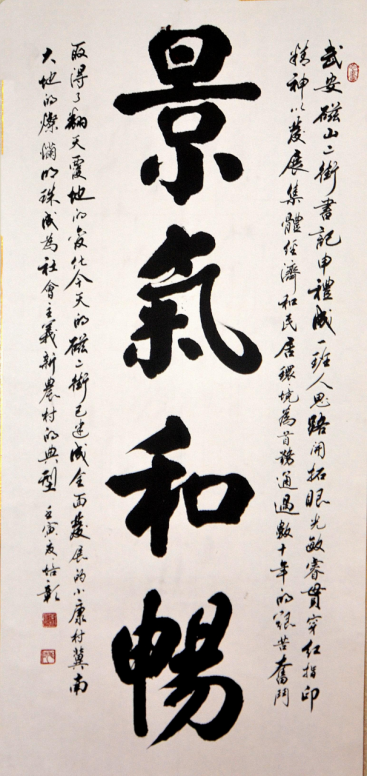 武安磁山二街書記申禮成一班人思路開拓眼光敏睿貫穿紅指印
精神以發展集體經濟和民居環境為首務通過數十年的艱苦奮鬥
景氣和暢
取得了翻天覆地的變化今天的磁二街已建成全面發展的小康村冀南
大地的燦爛明珠成為社會主義新農村的典型 壬寅夏培彰